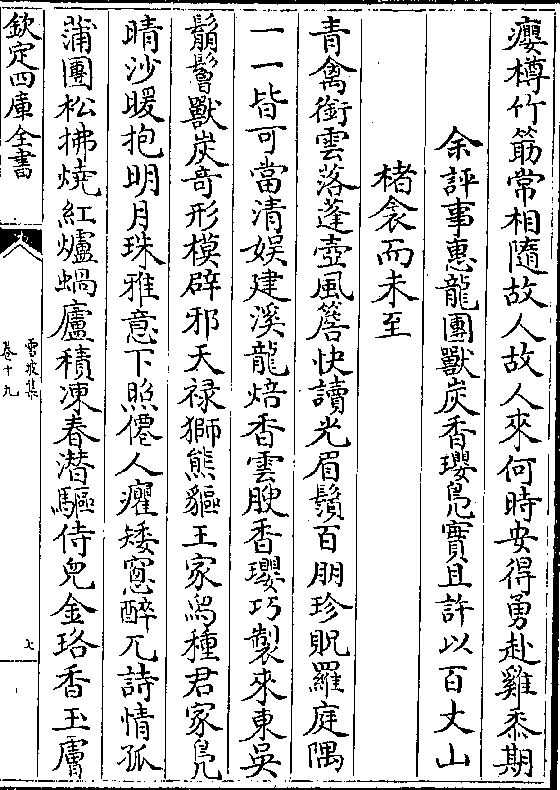 癭樽竹筯常相隨故人故人來何時安得勇赴雞黍期
余評事惠龍團獸炭香瓔鳬實且許以百丈山
楮衾而未至
青禽銜雲落蓬壺風簷快讀光眉鬚百朋珍貺羅庭隅
一一皆可當清娱建溪龍焙香雲腴香瓔巧製來東吳
鬅鬙獸炭竒形模辟邪天禄獅熊貙王家舄種君家鳬
晴沙暖抱明月珠雅意下照僊人癯矮窓醉兀詩情孤
蒲團松拂燒紅爐蝸廬積凍春潛驅侍兒金珞香玉膚
欽定四庫全書
雪坡集
卷十九
七